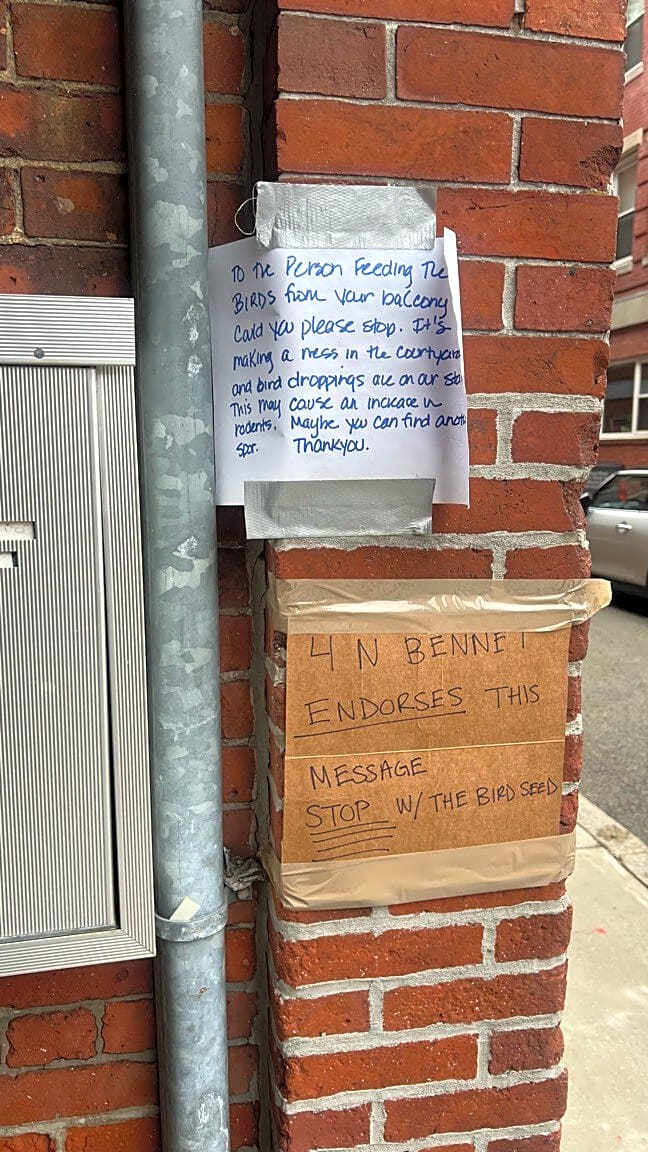 To the Person Feeding The
BIRDS from your balcony
Could you please stop. It's
making a mess in the courtyard
and bird droppings are on our
This may cause an increase in
rodents. Maybe you can find
spot. Thankyou.
4 N BENNET
ENDORSES THIS
MESSAGE
STOP W/ THE BIRD SEED